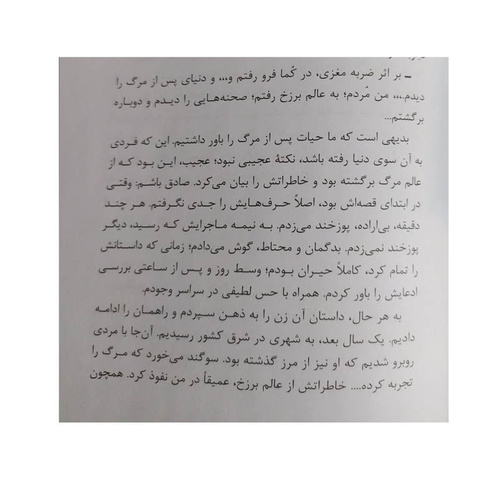 ـ بر اثر ضربه مغزی، در کُما فرو رفتم و،،،، و دنیای پس از مرگ را
دیدم.... من مُردم؛ به عالم برزخ رفتم؛ صحنه‌هایی را دیدم و دوباره
برگشتم...
بدیهی است که ما حیات پس از مرگ را باور داشتیم. این که فردی
به آن سوی دنیا رفته باشد، نکتهٔ عجیبی نبود؛ عجیب، این بود که از
عالم مرگ برگشته بود و خاطراتش را بیان می‌کرد. صادق باشم: وقتی
در ابتدای قصه‌اش بود، اصلاً حرف‌هایش را جدی نگرفتم. هر چند
دقیقه، بی‌اراده، پوزخند می‌زدم. به نیمه ماجرایش که رسید، دیگر
پوزخند نمی‌زدم. بدگمان و محتاط، گوش می‌دادم؛ زمانی که داستانش
را تمام کرد، کاملاً حیران بودم؛ وسط روز و پس از ساعتی بررسی
ادعایش را باور کردم. همراه با حس لطیفی در سراسر وجودم.
به هر حال، داستان آن زن را به ذهن سپردم و راهمان را ادامه
دادیم. یک سال بعد، به شهری در شرق کشور رسیدیم. آن‌جا با مردی
روبرو شدیم که او نیز از مرز گذشته بود. سوگند می‌خورد که مرگ را
تجربه کرده.... خاطراتش از عالم برزخ، عمیقاً در من نفوذ کرد. همچون